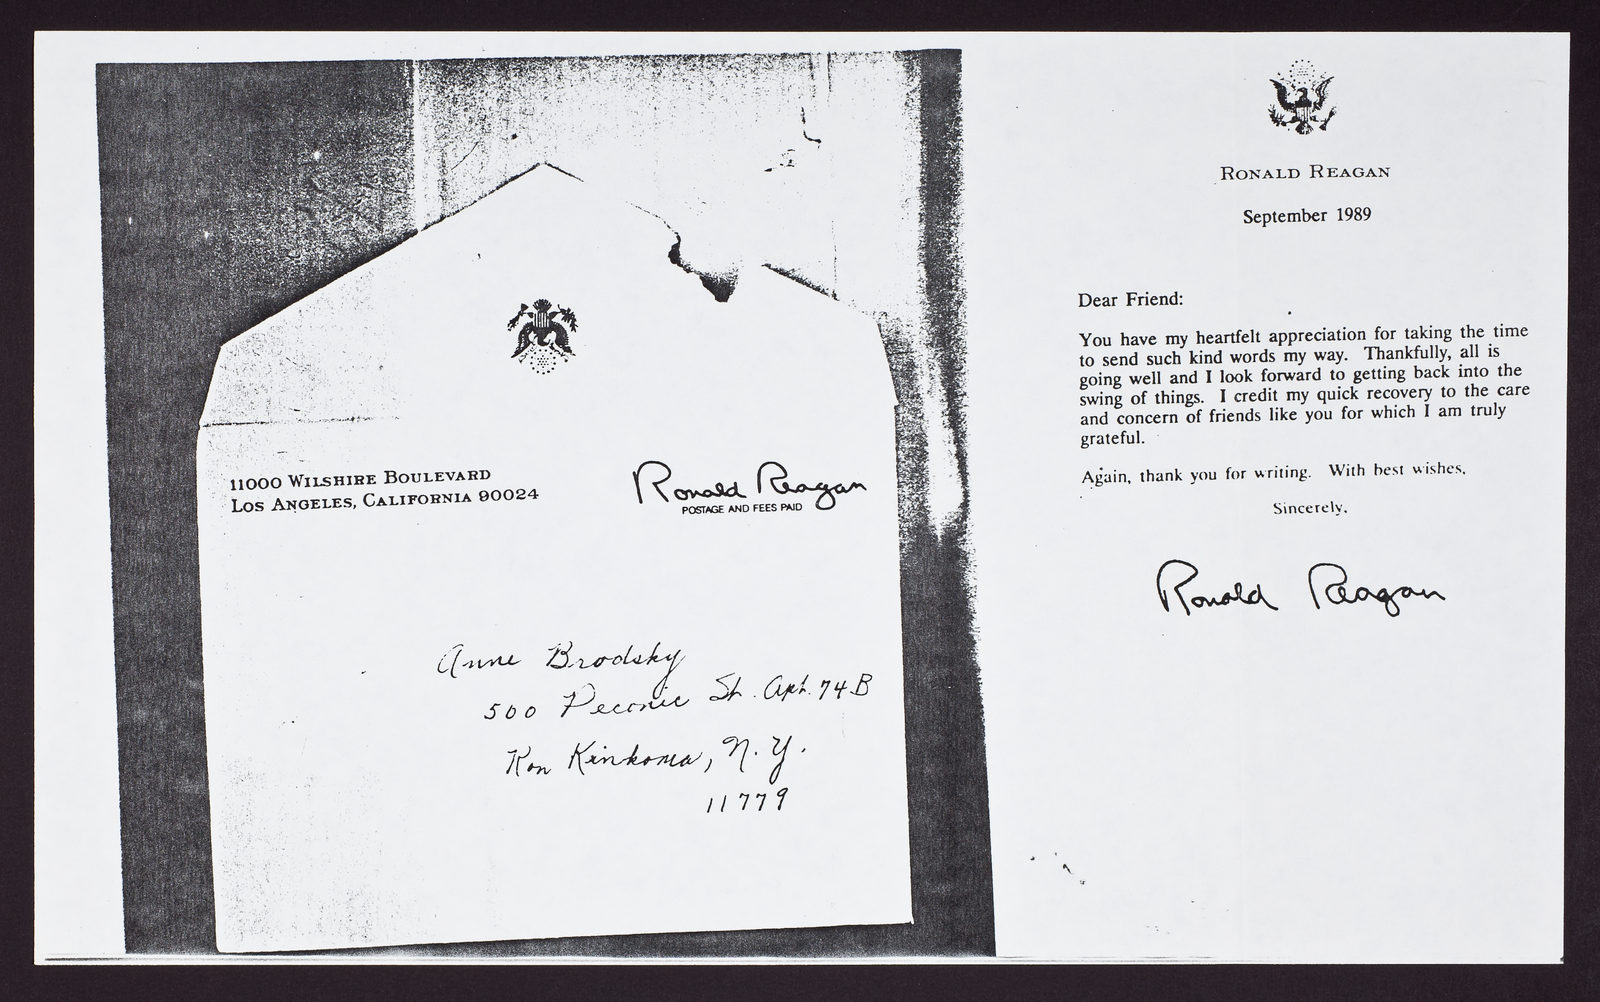 11000 WILSHIRE BOULEVARD
LOS ANGELES, CALIFORNIA 90024
Ronald Reagan
POSTAGE AND FEES PAID
Anne Brodsky
500 Peconic St. Apt. 74B
Ron Kinkoma, N.Y.
11779
RONALD REAGAN
September 1989
Dear Friend:
You have my heartfelt appreciation for taking the time
to send such kind words my way. Thankfully, all is
going well and I look forward to getting back into the
swing of things. I credit my quick recovery to the care
and concern of friends like you for which I am truly
grateful.
Again, thank you for writing. With best wishes,
Sincerely,
Ronald Reagan